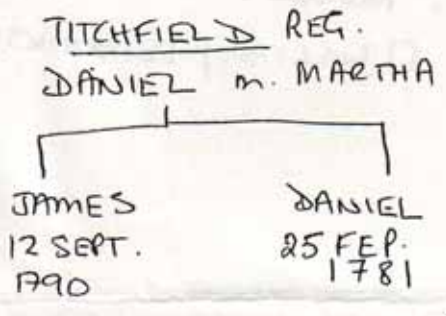 TITCHFIELD REG.
DANIEL m. MARTHA
JAMES
12 SEPT.
1790
DANIEL
25 FEP.
1781